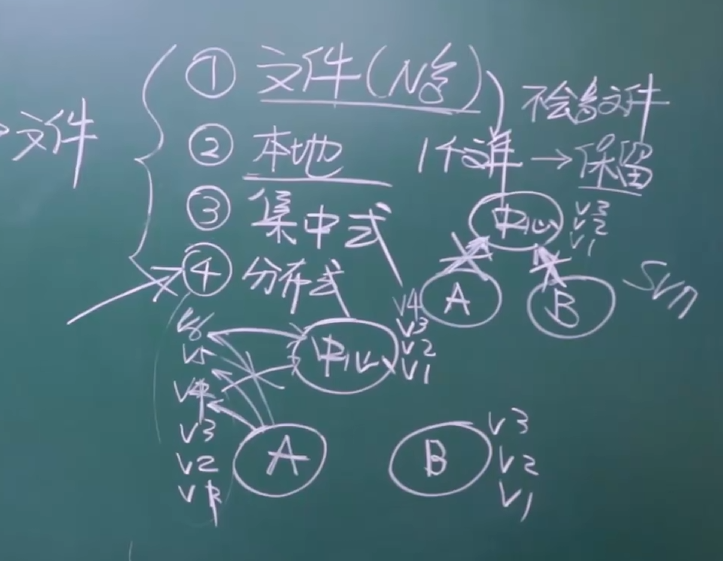 文件
① 文件(N多)
不会多文件
② 本地
1个文件 → 保留
③ 集中式
中心
V3
V2
V1
④ 分布式
A
B
Svn
V6
V5
V4
V3
V2
V1
中心
V4
V3
V2
V1
A
B
V3
V2
V1